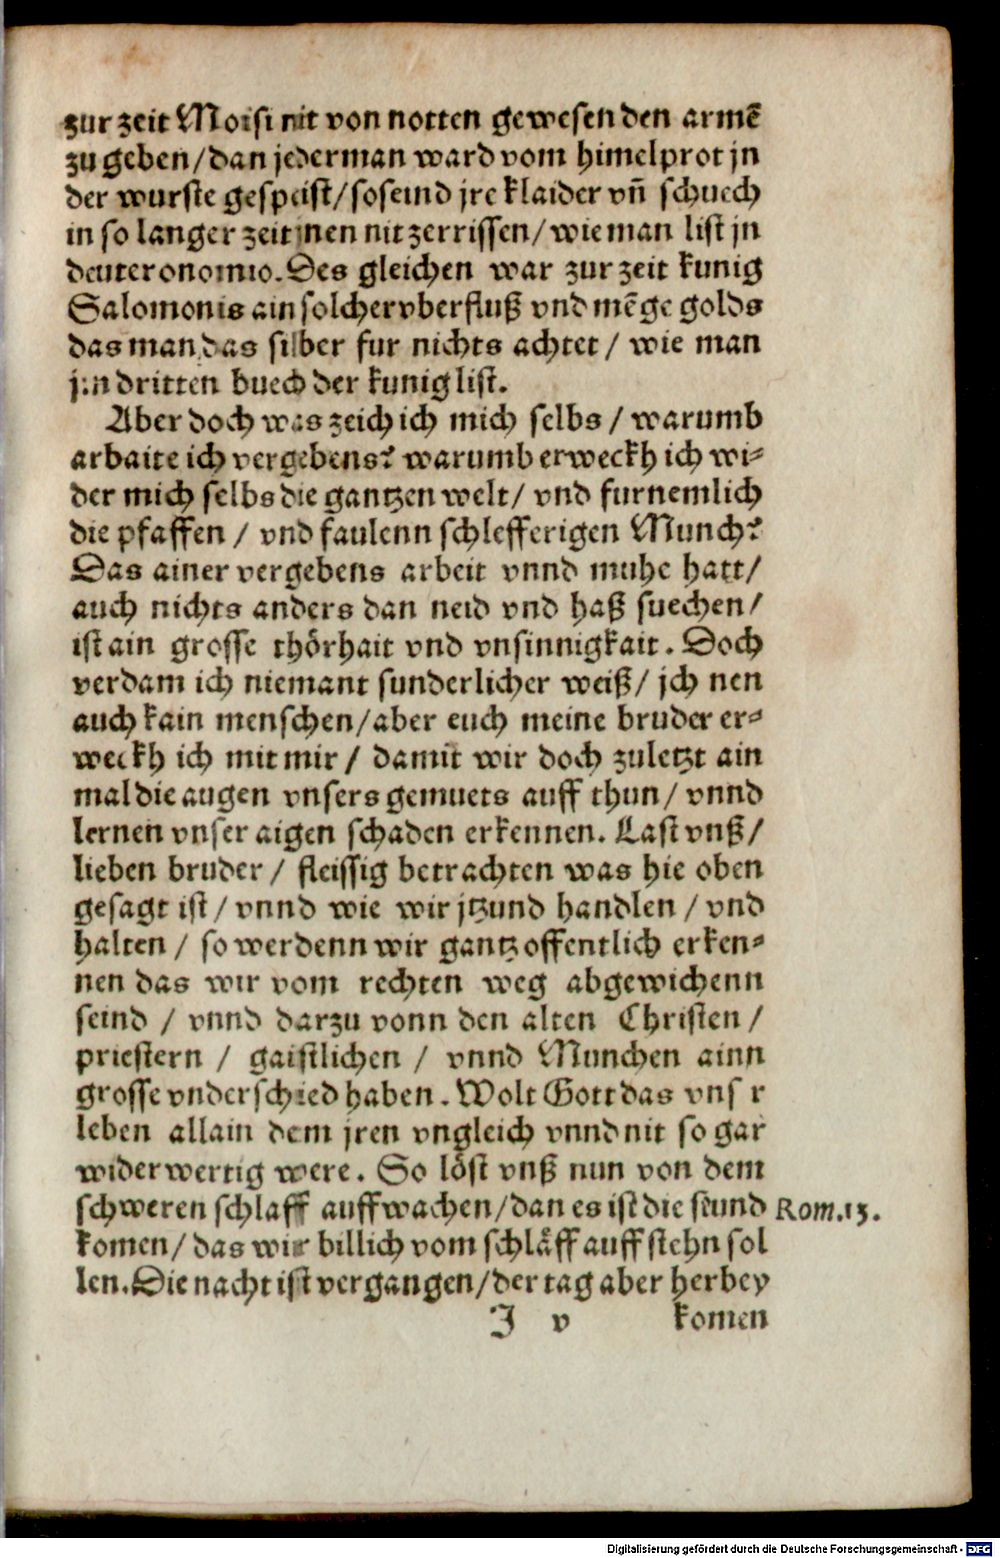 zur zeit Moisi nit von notten gewesen den armē
zu geben/dan jederman ward vom himelprot jn
der wurste gespeist/so seind jre klaider vn̄ schuech
in so langer zeit jnen nit zerrissen/wie man list jn
deuteronomio. Des gleichen war zur zeit kunig
Salomonis ain solcher vberfluß vnd mēge golds
das man das silber fur nichts achtet/ wie man
jm dritten buech der kunig list.
Aber doch was zeich ich mich selbs/warumb
arbaite ich vergebens? warumb erweckh ich wi-
der mich selbs die gantzen welt/ vnd furnemlich
die pfaffen/ vnd faulenn schlefferigen Munch?
Das ainer vergebens arbeit vnnd muhe hatt/
auch nichts anders dan neid vnd haß suechen/
ist ain grosse thörhait vnd vnsinnigkait. Doch
verdam ich niemant sunderlicher weiß/ jch nen
auch kain menschen/aber euch meine bruder er-
weckh ich mit mir/ damit wir doch zuletzt ain
mal die augen vnsers gemuets auff thun/ vnnd
lernen vnser aigen schaden erkennen. Last vnß/
lieben bruder/ fleissig betrachten was hie oben
gesagt ist/ vnnd wie wir jtzund handlen/ vnd
halten/ so werdenn wir gantz offentlich erken-
nen das wir vom rechten weg abgewichenn
seind/ vnnd darzu vonn den alten Christen/
priestern/ gaistlichen/ vnnd Munchen ainn
grosse vnderschied haben. Wolt Gott das vns r
leben allain dem jren vngleich vnnd nit so gar
widerwertig were. So löst vnß nun von dem
schweren schlaff auffwachen/dan es ist die stund
Rom.13.
komen/das wir billich vom schläff auff stehn sol
len. Die nacht ist vergangen/der tag aber herbey
J v komen
Digitalisierung gefördert durch die Deutsche Forschungsgemeinschaft - DFG